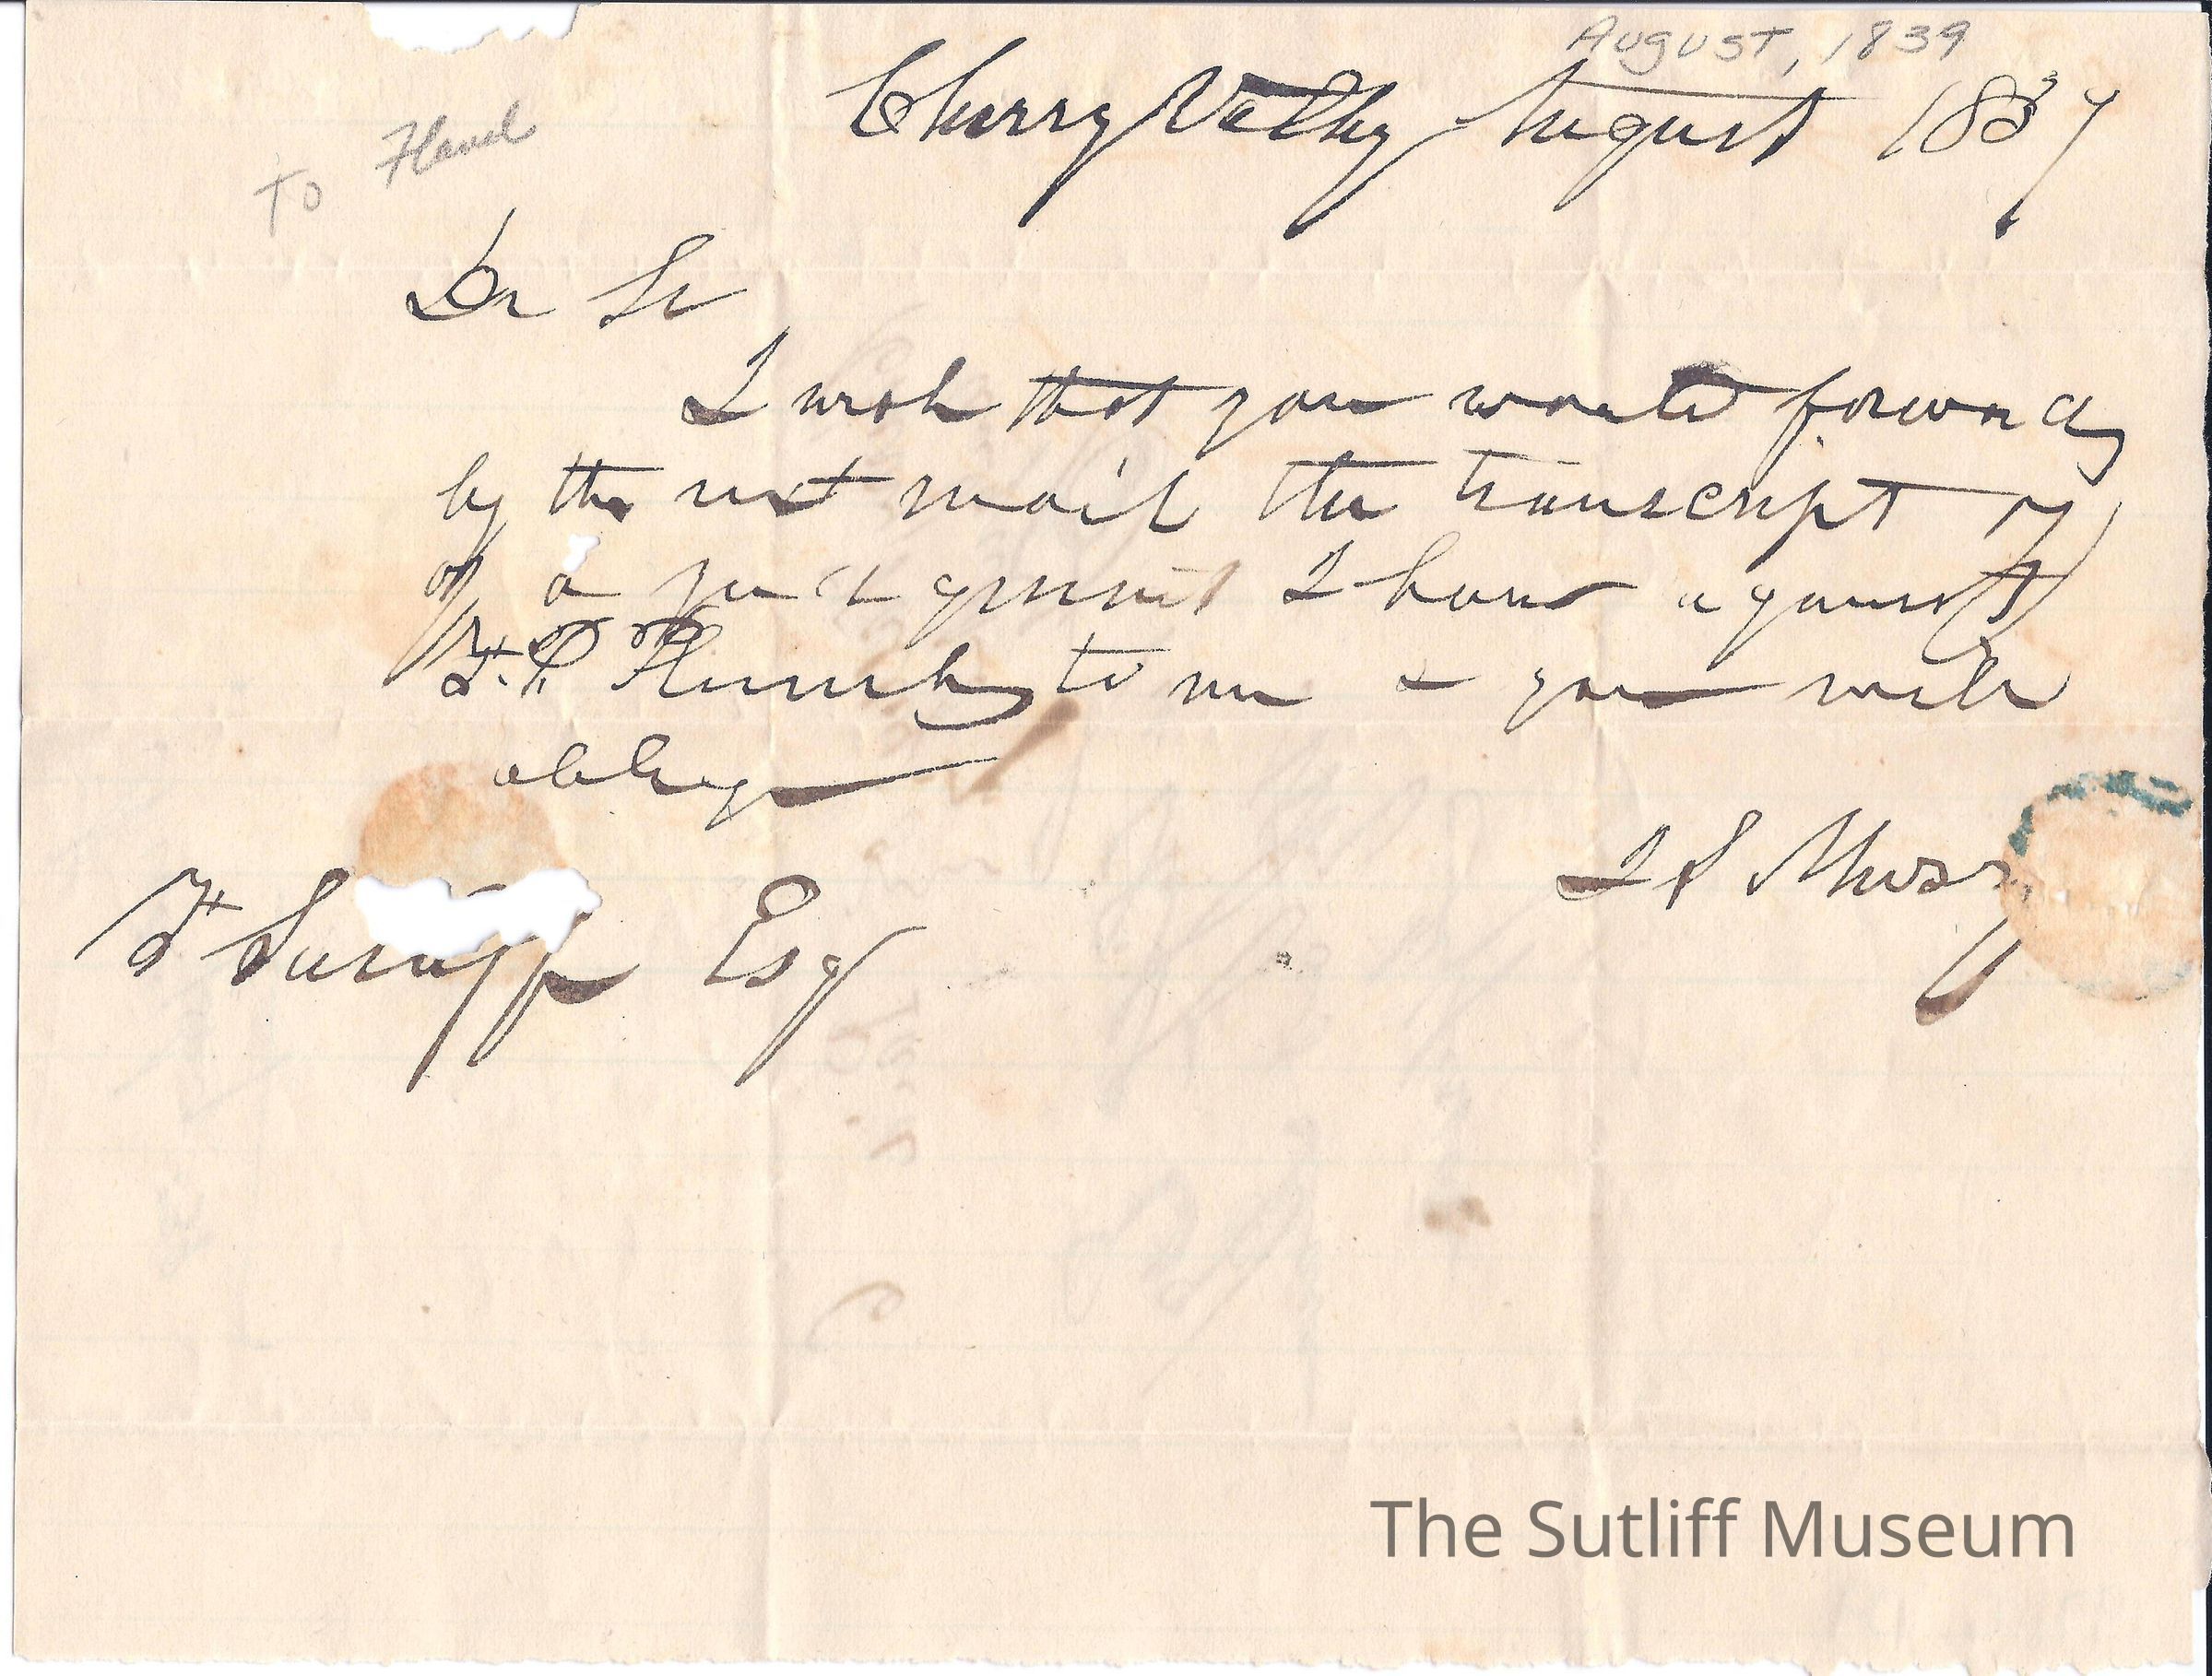 August, 1839
Cherry Valley August 1839
To Flavel
Dr Sir
I wish that you would forward
by the next mail the transcript
of a judgment I have against
F. P. to me & you will
oblige
I S Moss
F Sutliff Esq
The Sutliff Museum